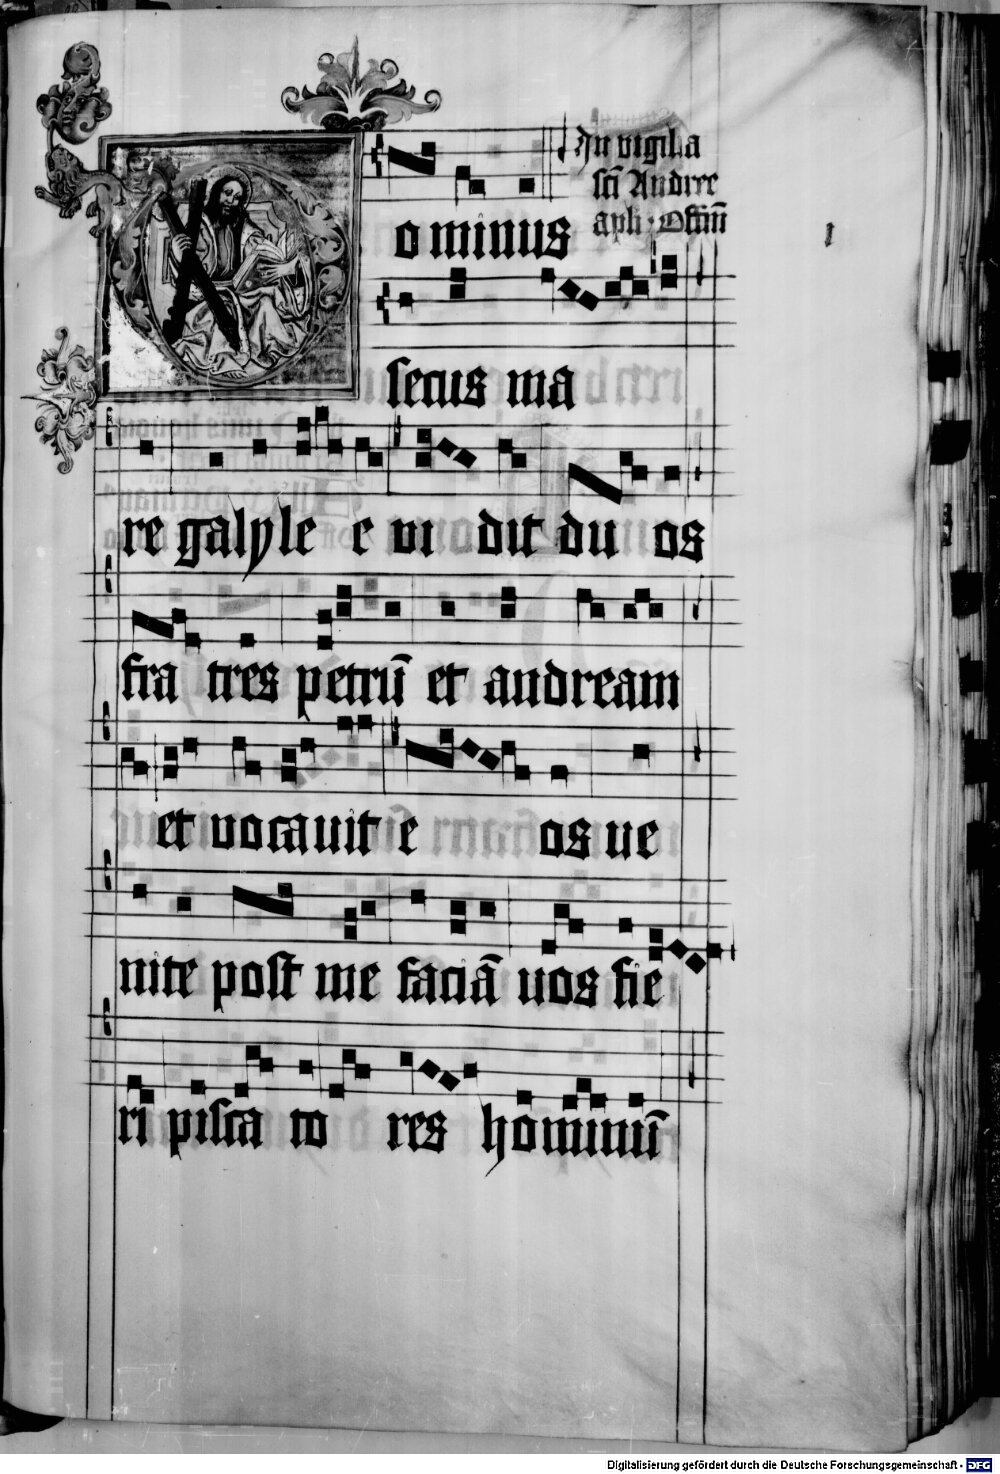 In vigilia
sci Andree
apli · Offm
Dominus
secus ma
re galyle e vi dit du os
fra tres petrū et andream
et vocauit e os ue
nite post me faciā uos fie
ri pisca to res hominū
Digitalisierung gefördert durch die Deutsche Forschungsgemeinschaft - DFG